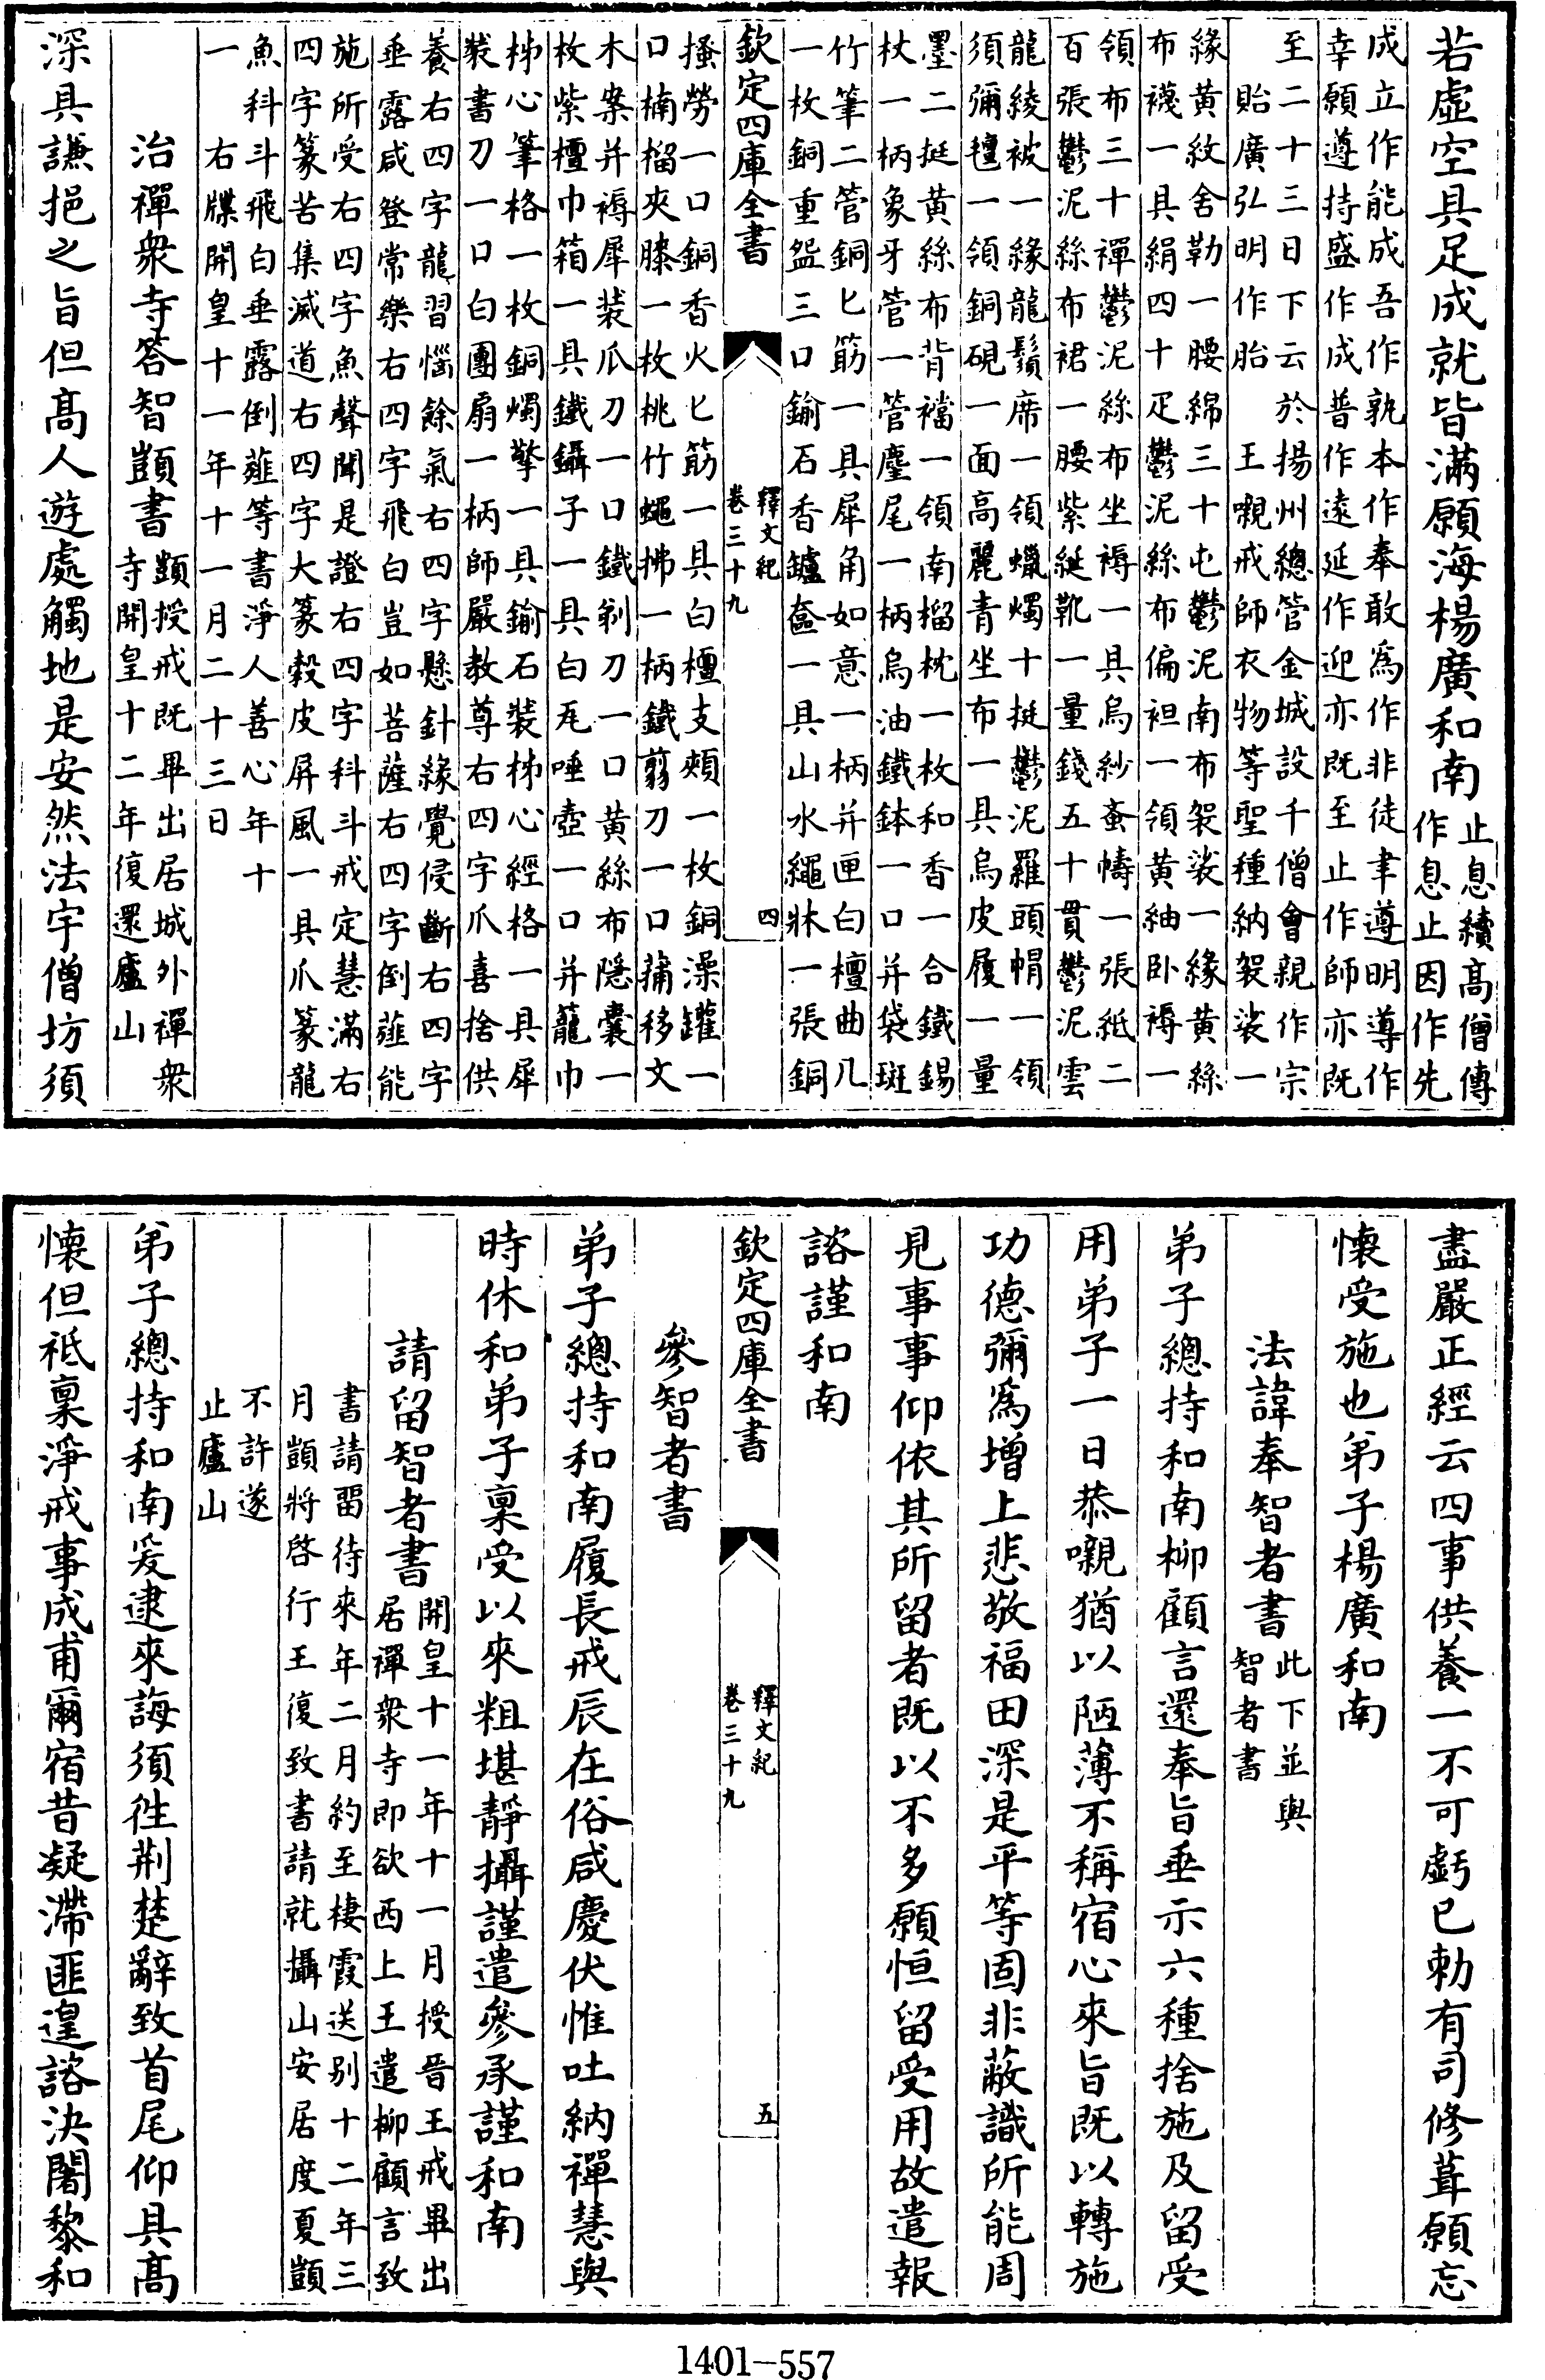 若虛空具足成就皆滿願海楊廣和南止息續髙僧傳
作息止因作先
成立作能成吾作孰本作奉敢為作非徒聿遵明導作
幸願遵持盛作成普作遠延作迎亦既至止作師亦既
至二十三日下云於揚州總管金城設千僧會親作宗
貽廣弘明作胎　王嚫戒師衣物等聖種納袈裟一
緣黄紋舍勒一腰綿三十屯鬱泥南布袈裟一緣黄絲
布襪一具絹四十疋鬱泥絲布偏袒一領黄紬卧褥一
領布三十禪鬱泥絲布坐褥一具烏紗蚉幬一張紙二
百張鬱泥絲布裙一腰紫綖靴一量錢五十貫鬱泥雲
龍綾被一緣龍鬚席一領蠟燭十挺鬱泥羅頭帽一領
須彌氊一領銅硯一面高麗青坐布一具烏皮履一量
墨二挺黄絲布背襠一領南榴枕一枚和香一合鐵錫
杖一柄象牙管一管麈尾一柄烏油鐵鉢一口并袋斑
竹筆二管銅匕筯一具犀角如意一柄并匣白檀曲几
一枚銅重盌三口鍮石香鑪奩一具山水繩牀一張銅
欽定四庫全書
釋文紀
卷三十九
四
搔勞一口銅香火匕筯一具白檀支頰一枚銅澡罐一
口楠榴夾膝一枚桃竹蠅拂一柄鐵剪刀一口蒲移文
木案并褥犀装爪刀一口鐵剃刀一口黄絲布隠囊一
枚紫檀巾箱一具鐵鑷子一具白瓦唾壺一口并籠巾
柹心筆格一枚銅燭擎一具鍮石裝柹心經格一具犀
裝書刀一口白團扇一柄師嚴教尊右四字爪喜捨供
養右四字龍習惱餘氣右四字懸針緣覺侵斷右四字
垂露咸登常樂右四字飛白豈如菩薩右四字倒薤能
施所受右四字魚聲聞是證右四字科斗戒定慧滿右
四字篆苦集滅道右四字大篆榖皮屏風一具爪篆龍
魚科斗飛白垂露倒薤等書淨人善心年十
一　右牒開皇十一年十一月二十三日
治禪衆寺答智顗書顗授戒既畢出居城外禪衆
寺開皇十二年復還廬山
深具謙挹之旨但髙人遊處觸地是安然法宇僧坊須
盡嚴正經云四事供養一不可虧已勅有司修葺願忘
懷受施也弟子楊廣和南
法諱奉智者書此下並與
智者書
弟子總持和南柳顧言還奉旨垂示六種捨施及留受
用弟子一日恭嚫猶以陋薄不稱宿心來旨既以轉施
功德彌為增上悲敬福田深是平等固非蔽識所能周
見事事仰依其所留者既以不多願恒留受用故遣報
諮謹和南
欽定四庫全書
釋文紀
卷三十九
五
參智者書
弟子總持和南履長戒辰在俗咸慶伏惟吐納禪慧與
時休和弟子禀受以來粗堪靜攝謹遣參承謹和南
請留智者書開皇十一年十一月授晉王戒畢出
居禪衆寺即欲西上王遣柳顧言致
書請留待來年二月約至棲霞送别十二年三
月顗將啓行王復致書請就攝山安居度夏顗
不許遂
止廬山
弟子總持和南爰逮來誨須徃荆楚辭致首尾仰具髙
懷但祗稟淨戒事成甫爾宿昔凝滯匪遑諮決闍黎和
1401-557